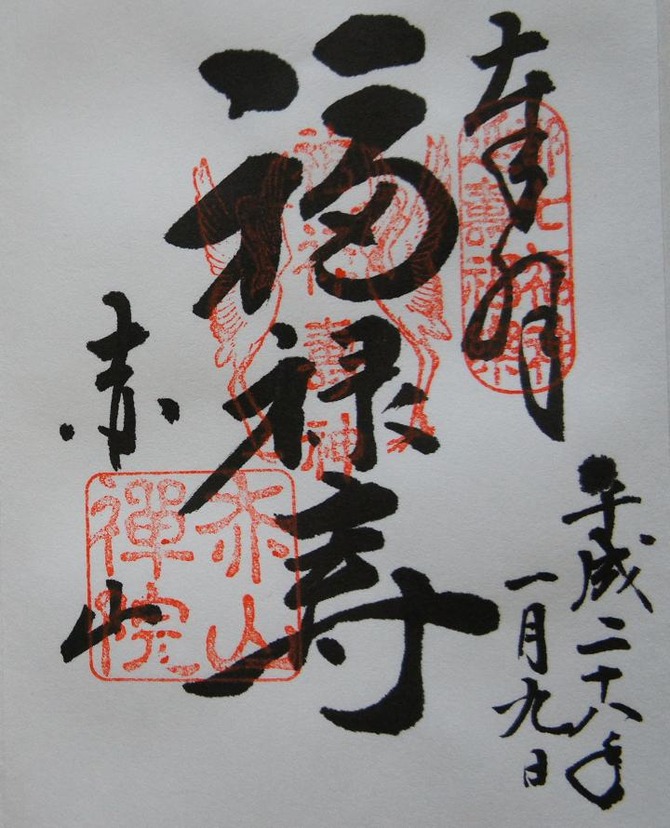 奉拝
都七福神
平成二十八年
一月九日
福禄寿
福祿壽神
赤山
赤山
禪院